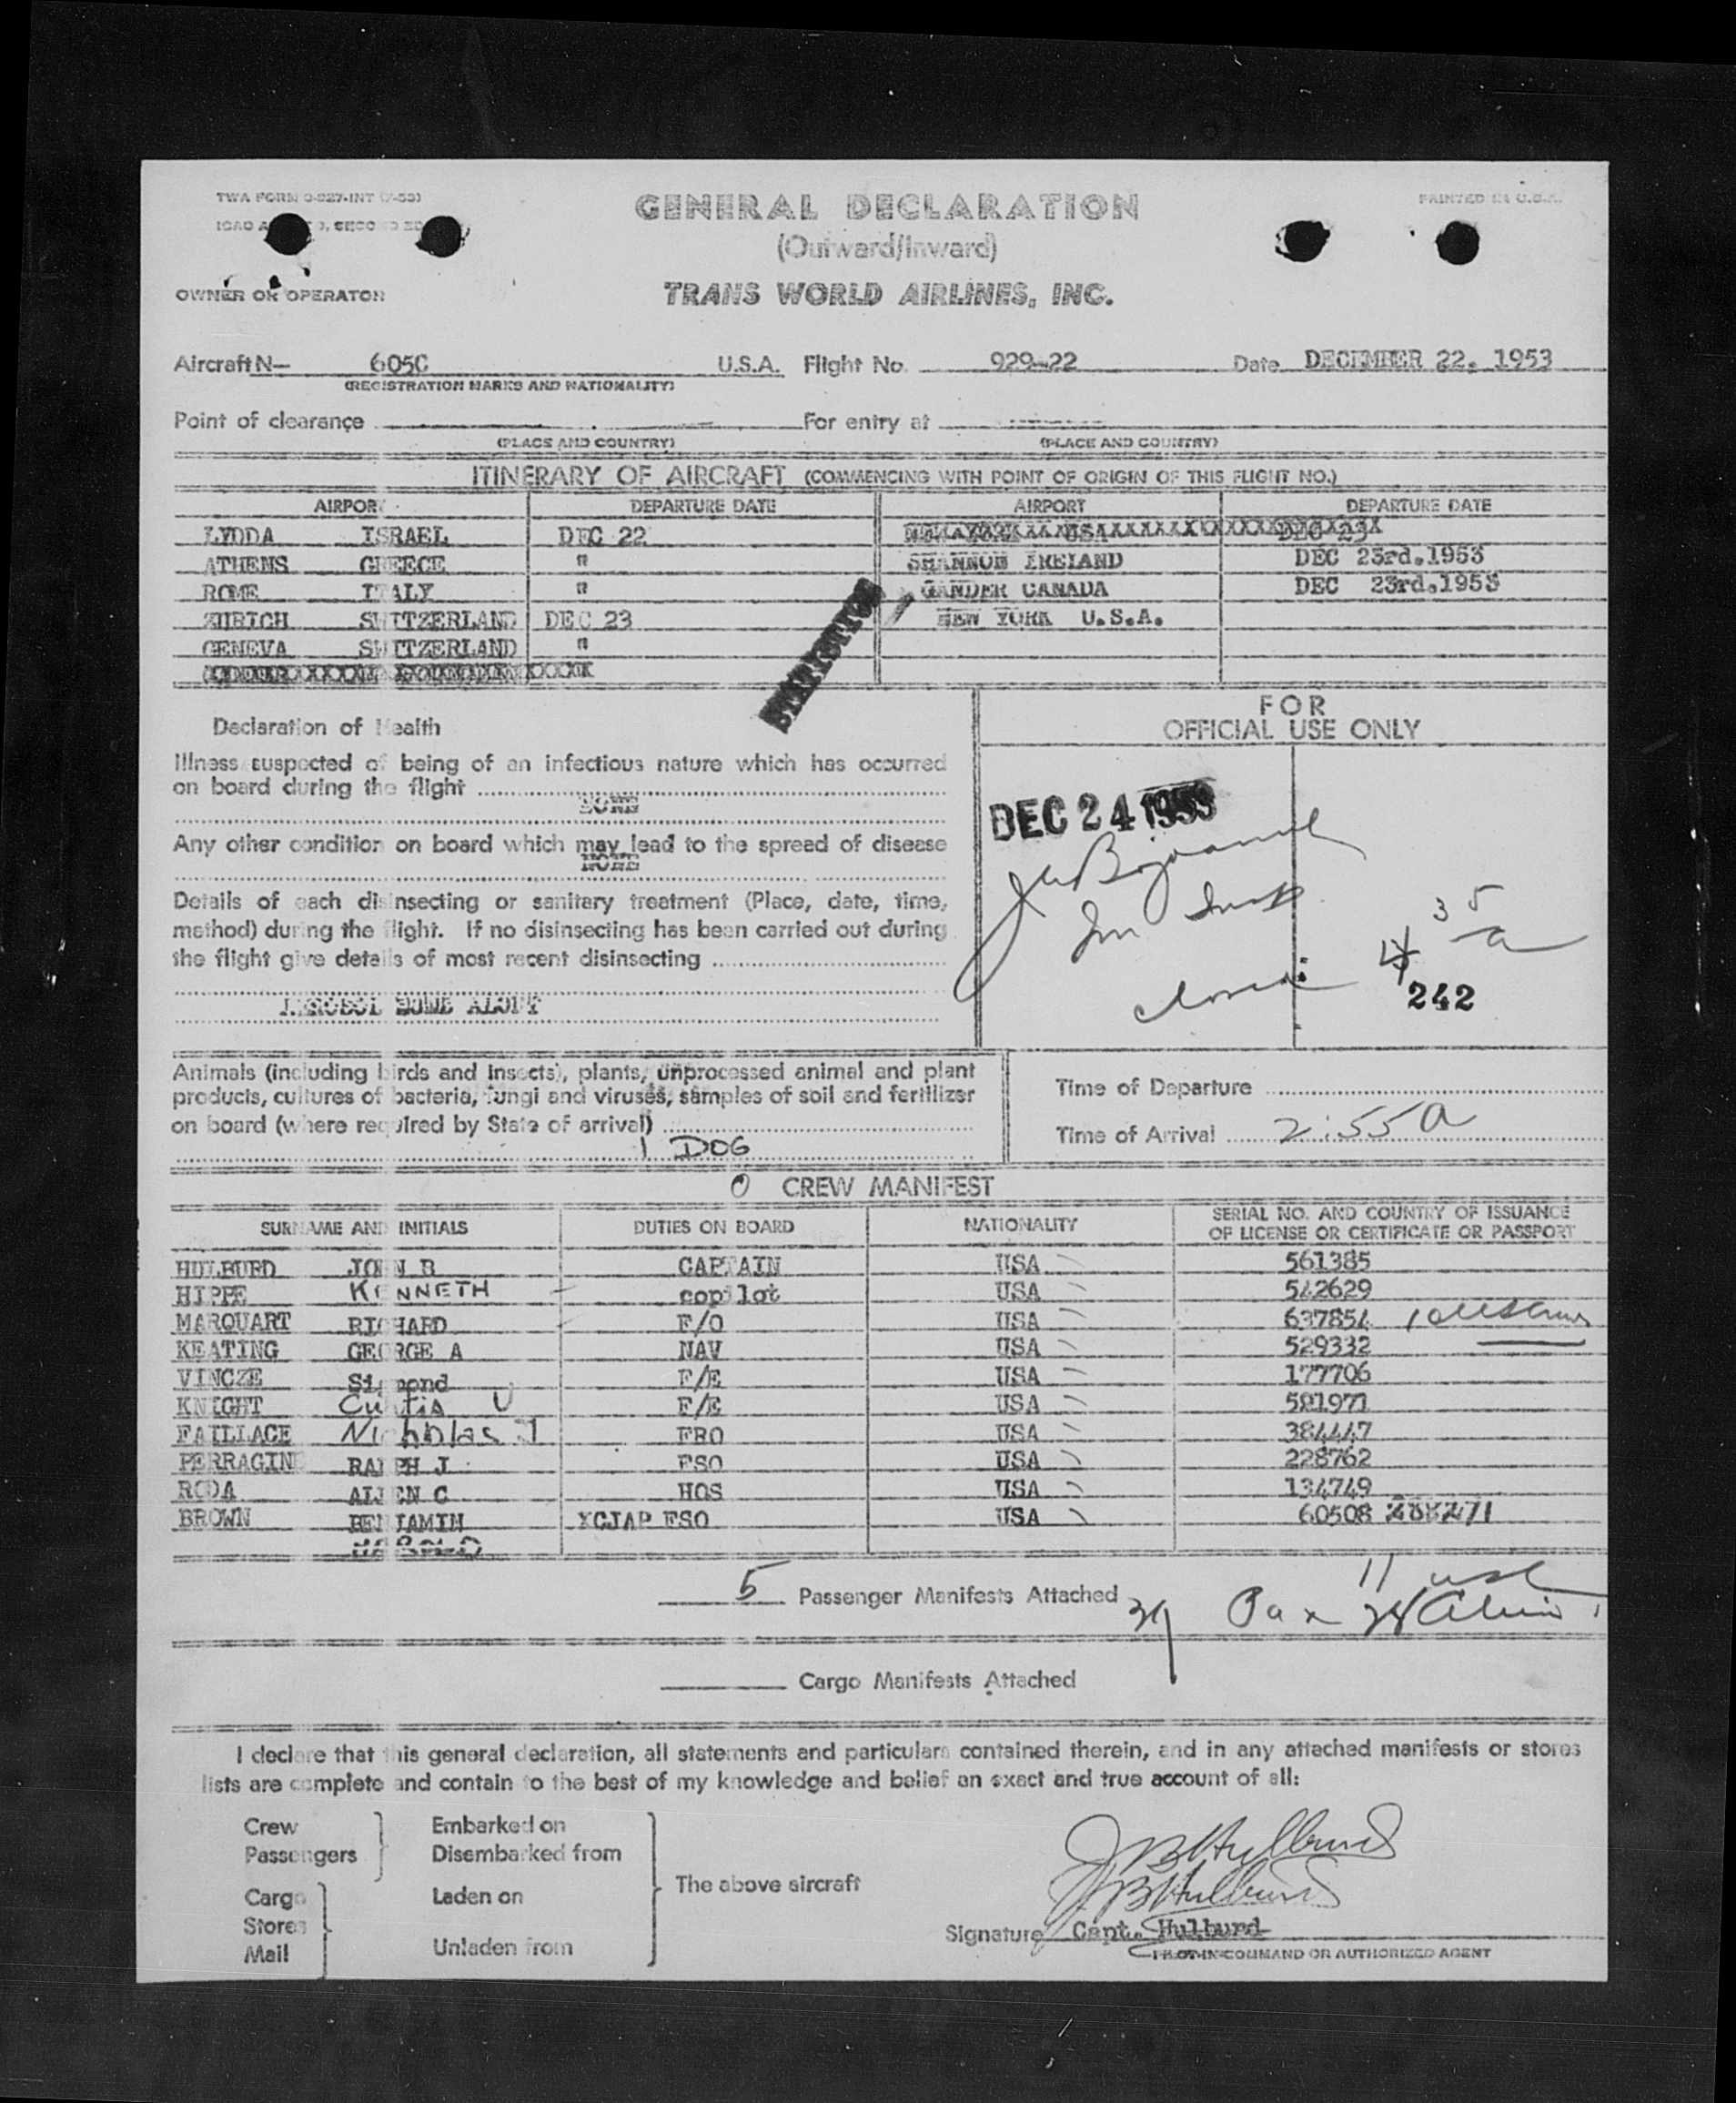 TWA FORM O-927-INT (7-53)
PRINTED IN U.S.A.
GENERAL DECLARATION
(Outward/Inward)
OWNER OR OPERATOR
TRANS WORLD AIRLINES, INC.
Aircraft N— 605C U.S.A. Flight No. 929-22 Date DECEMBER 22, 1953
(REGISTRATION MARKS AND NATIONALITY)
Point of clearance For entry at
(PLACE AND COUNTRY) (PLACE AND COUNTRY)
ITINERARY OF AIRCRAFT (COMMENCING WITH POINT OF ORIGIN OF THIS FLIGHT NO.)
AIRPORT DEPARTURE DATE AIRPORT DEPARTURE DATE
LYDDA ISRAEL DEC 22 DEC 23
ATHENS GREECE " SHANNON IRELAND DEC 23rd.1953
ROME ITALY " GANDER CANADA DEC 23rd.1953
ZURICH SWITZERLAND DEC 23 NEW YORK U.S.A.
GENEVA SWITZERLAND "
STATISTICS
Declaration of Health
FOR
OFFICIAL USE ONLY
Illness suspected of being of an infectious nature which has occurred
on board during the flight
NONE
Any other condition on board which may lead to the spread of disease
NONE
Details of each disinsecting or sanitary treatment (Place, date, time,
method) during the flight. If no disinsecting has been carried out during
the flight give details of most recent disinsecting
AEROSOL BOMB ALOFT
DEC 24 1953
242
Animals (including birds and insects), plants, unprocessed animal and plant
products, cultures of bacteria, fungi and viruses, samples of soil and fertilizer
on board (where required by State of arrival)
1 DOG
Time of Departure
Time of Arrival 2:55 a
CREW MANIFEST
SURNAME AND INITIALS DUTIES ON BOARD NATIONALITY SERIAL NO. AND COUNTRY OF ISSUANCE
OF LICENSE OR CERTIFICATE OR PASSPORT
HULBURD JOHN B CAPTAIN USA 561385
HIPPE KENNETH copilot USA 542629
MARQUART RICHARD F/O USA 637854
KEATING GEORGE A NAV USA 529332
VINCZE Sigmond F/E USA 177706
KNIGHT Curtis U F/E USA 581971
FAILLACE Nicholas J FRO USA 384447
PERRAGINE RALPH J FSO USA 228762
RODA ALLEN C HOS USA 134749
BROWN BENJAMIN XCJAP FSO USA 60508
HAROLD
5 Passenger Manifests Attached
39 Pax
Cargo Manifests Attached
I declare that this general declaration, all statements and particulars contained therein, and in any attached manifests or stores
lists are complete and contain to the best of my knowledge and belief an exact and true account of all:
Crew Embarked on
Passengers Disembarked from
The above aircraft
Cargo Laden on
Stores
Mail Unladen from
JBHulburd
JBHulburd
Signature Capt. Hulburd
PILOT-IN-COMMAND OR AUTHORIZED AGENT